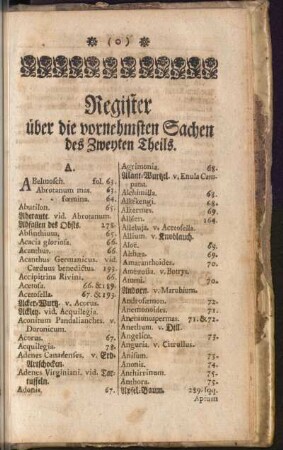 (o)
Register
über die vornehmsten Sachen
des Zweyten Theils.
A.
ABelmosch. fol. 63.
Abrotanum mas. 63.
- - fœmina. 64.
Abutilon. 65.
Aberraute. vid. Abrotanum.
Abfallen des Obsts. 278.
Absinthium. 65.
Acacia gloriosa. 66.
Acanthus. 66.
Acanthus Germanicus. vid.
Carduus benedictus. 193.
Accipitrina Rivini. 66.
Acetosa. 66. &189.
Acetosella. 67. & 193.
Acker-Wurtz. v. Acorus.
Ackley. vid. Acquilegia.
Aconitum Pardalianches. v.
Doronicum.
Acorus. 67.
Acquilegia. 78.
Adenes Canadenses. v. Erd-
Artischocken.
Adenes Virginiani. vid. Tar-
tuffeln.
Adonis. 67.
Agrimonia. 68.
Alant-Wurtzel. v. Enula Cam-
pana.
Alchimilla. 68.
Alkekengi. 68.
Alkermes. 69.
Alisier. 164.
Alleluja. v. Acetosella.
Allium. v. Knoblauch.
Aloë. 69.
Althæa. 69.
Amaranthoides. 70.
Ambrosia. v. Botrys.
Ammi. 70.
Andorn. v. Marubium.
Androsæmon. 72.
Anemonoides. 71.
Anemonospermos. 71. & 72.
Anethum. v. Dill.
Angelica. 73.
Anguria. v. Citrullus.
Anisum. 73.
Anonis. 74.
Anthirrinum. 75.
Anthora. 75.
Apfel-Baum. 289. sqq.
Apium